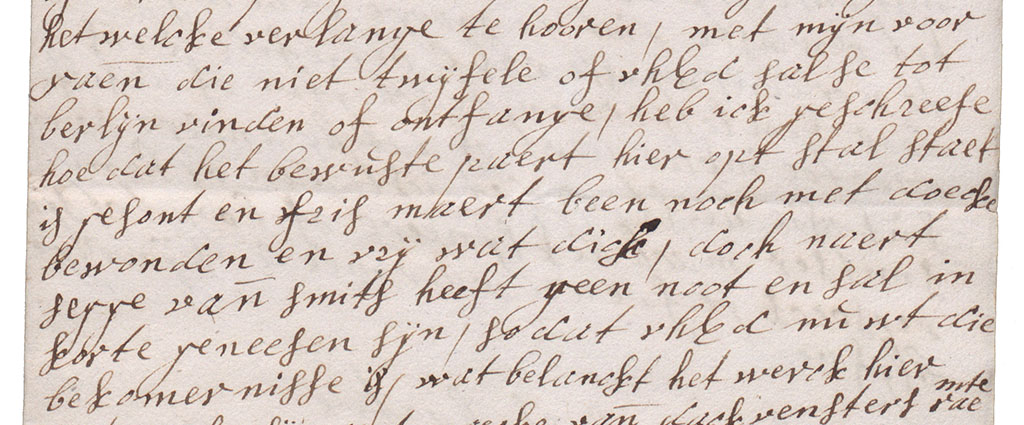 het welcke verlange te hooren, met mijn voor
raen die niet twijfele of vhEd salse tot
berlijn vinden of ontfange, heb ick geschreefe
hoe dat het bewuste paert hier opt stal staet
is gesont en fris maert been noch met doecke
bewonden en vrij wat dick, doch naert
segge van smits heeft geen noot en sal in
korte geneesen sijn, so dat vhEd nu wt die
bekomernisse is, wat belanckt het werck hier
van dack vensters mte